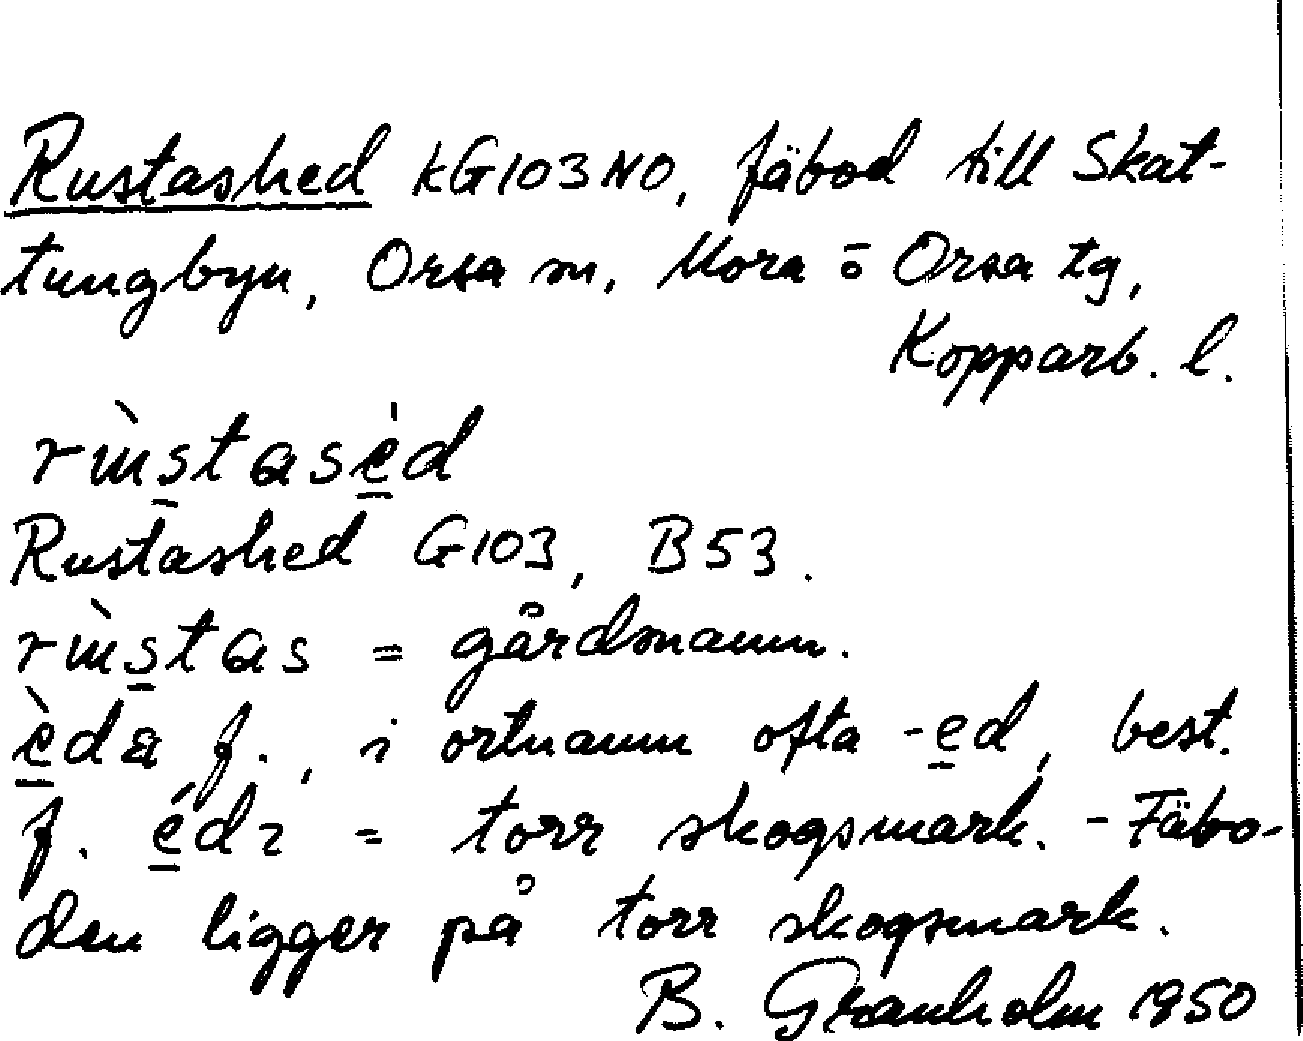 Rustashed kG103NO, fäbod till Skat-
tungbyn, Orsa sn, Mora o Orsa tg,
Kopparb. l.
Rustashed G103, B53.
= gårdsnamn.
f., i ortnamn ofta -ed, best.
f. = torr skogsmark. - Fäbo-
den ligger på torr skogsmark.
B. Granholm 1950